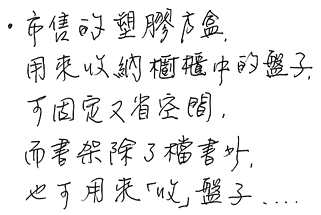 •市售的塑膠方盒,
用來收納櫥櫃中的盤子,
可固定又省空間,
而書架除了檔書外,
也可用來「收」盤子....